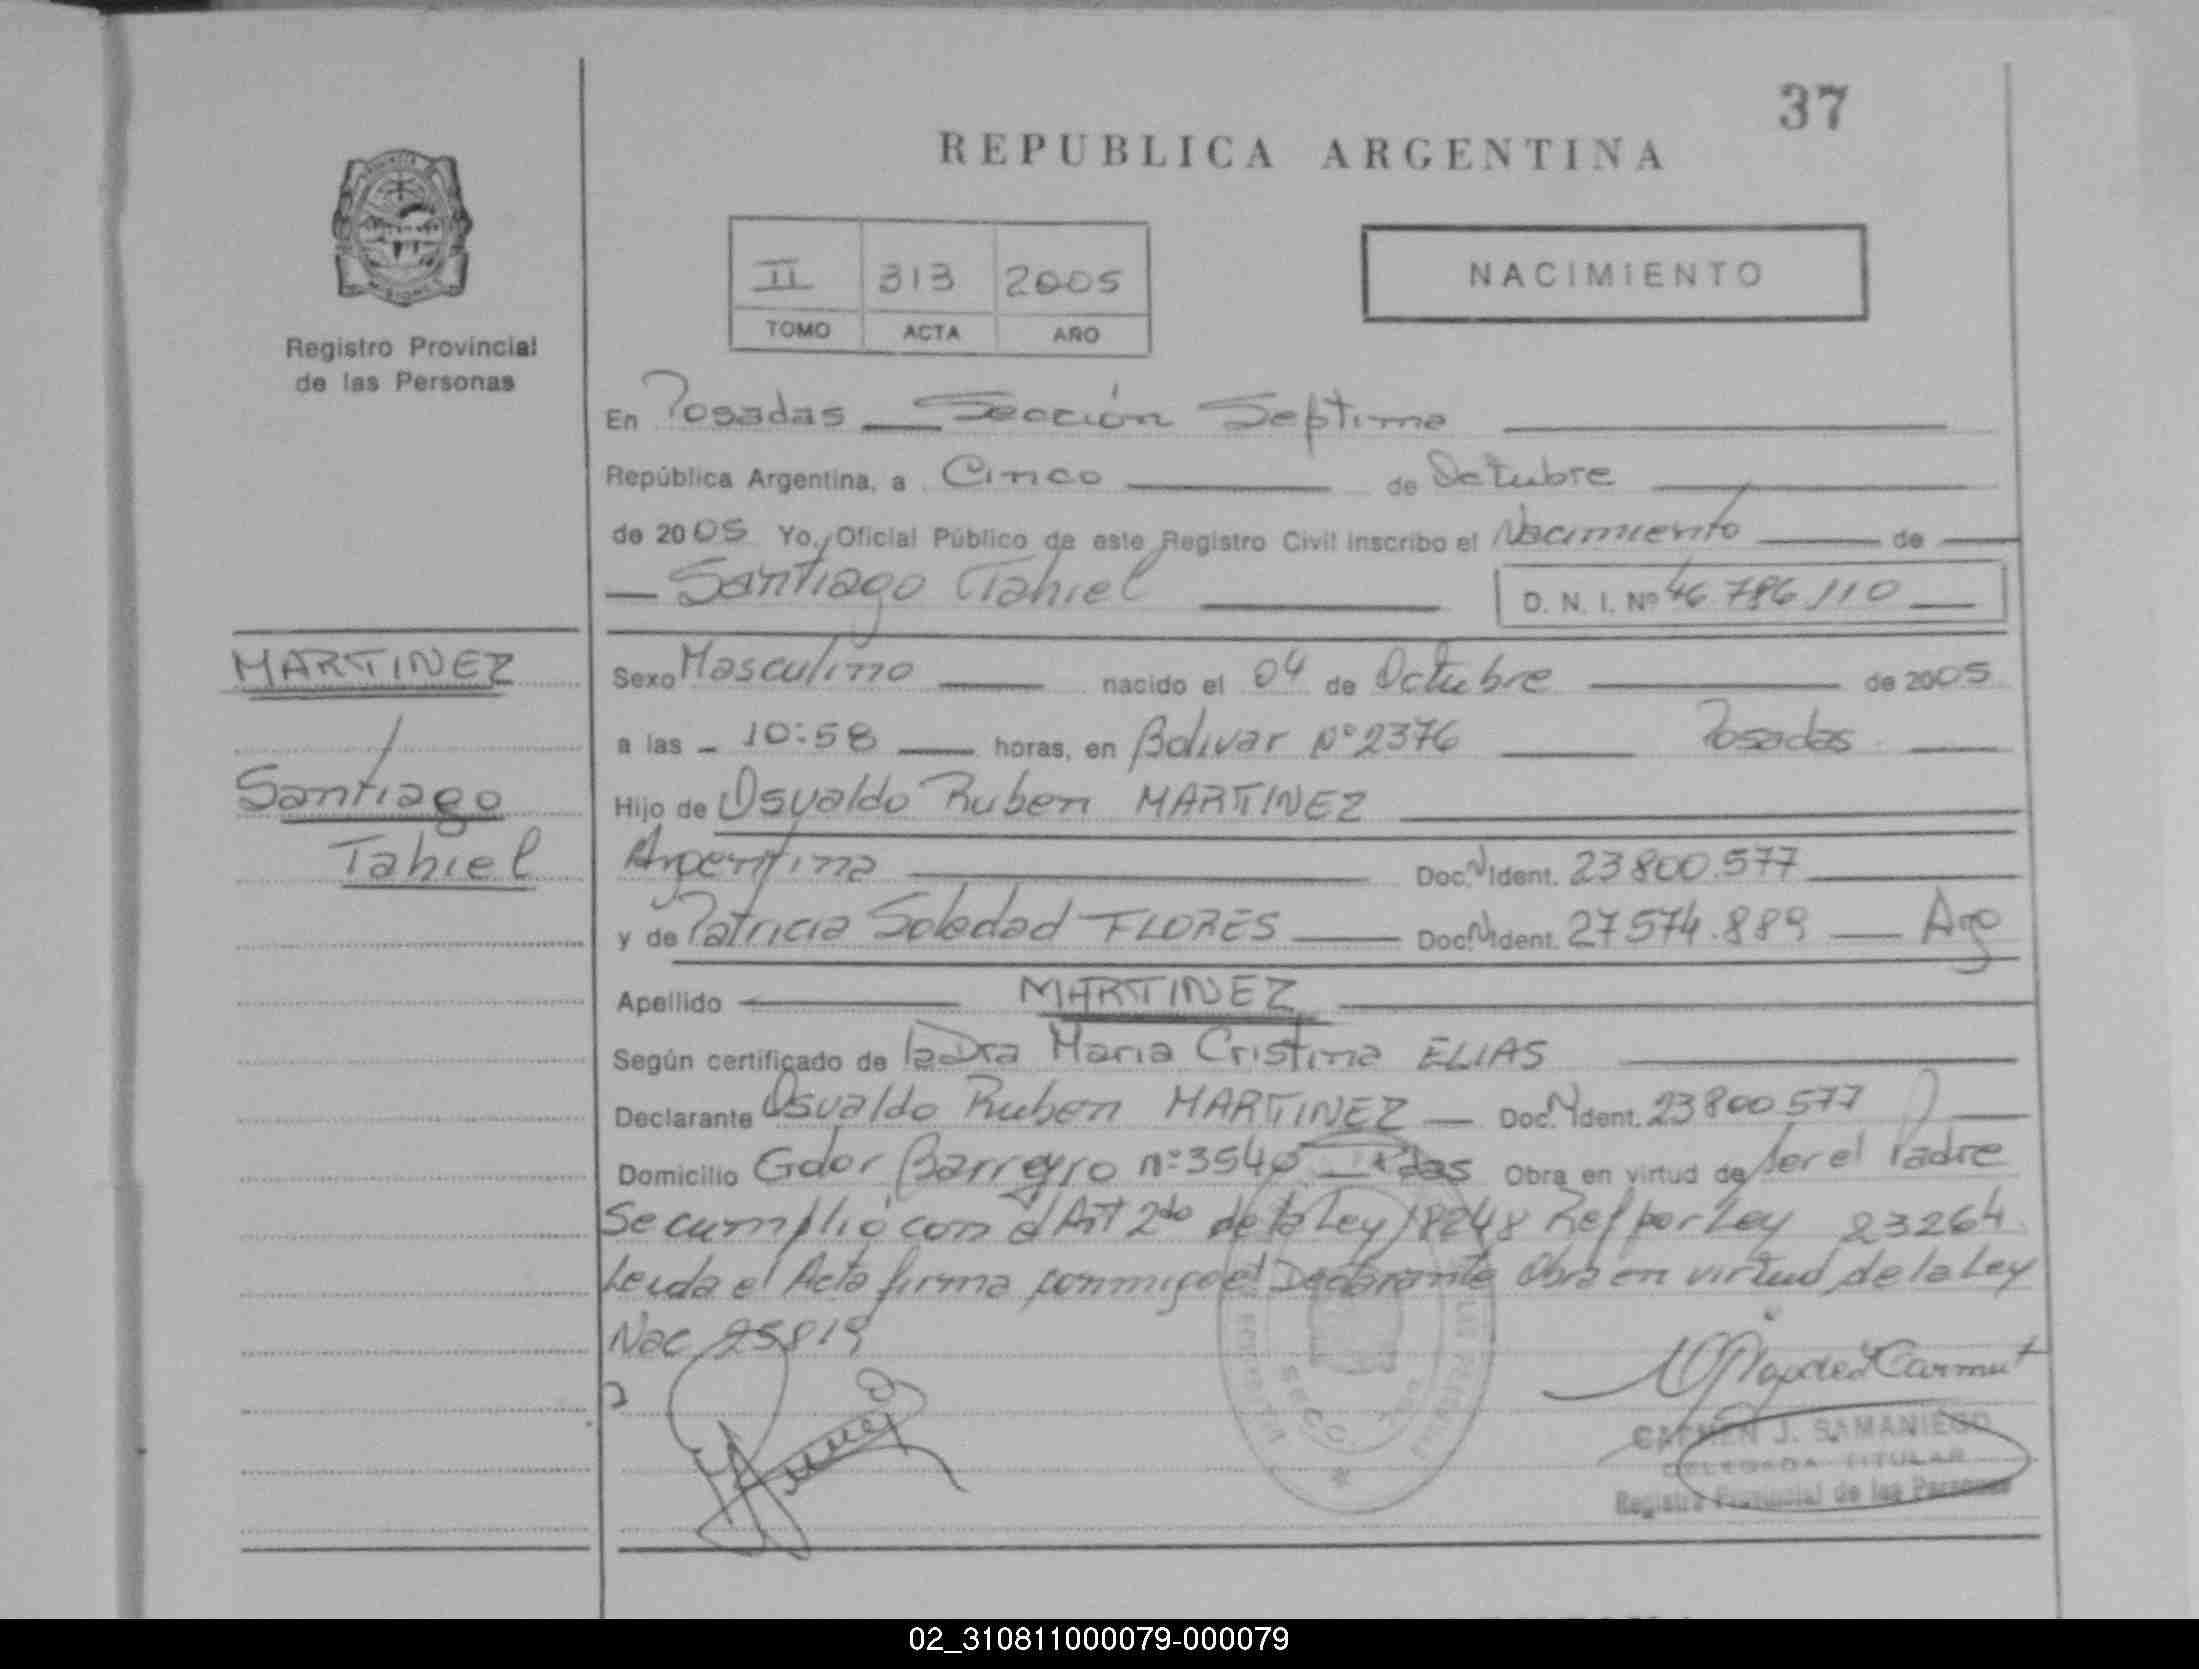 37
REPUBLICA ARGENTINA
II 313 2005
TOMO ACTA AÑO
NACIMIENTO
Registro Provincial
de las Personas
En Posadas Sección Septima
República Argentina, a Cinco de Octubre
de 2005 Yo, Oficial Público de este Registro Civil inscribo el Nacimiento de
Santiago Tahiel D. N. I. Nº 46.786.110
MARTINEZ
Santiago
Tahiel
Sexo Masculino nacido el 04 de Octubre de 2005
a las 10:58 horas, en Bolivar Nº 2376 Posadas
Hijo de Osvaldo Ruben MARTINEZ
Argentina Doc. N Ident. 23800.577
y de Patricia Soledad FLORES Doc. N Ident. 27574.889 Arg
Apellido MARTINEZ
Según certificado de la Dra Maria Cristina ELIAS
Declarante Osvaldo Ruben MARTINEZ Doc. N Ident. 23800577
Domicilio Gdor Barreyro nº 3540 Pdas Obra en virtud de ser el Padre
Se cumplió con el Art 2do de la Ley 18248 Ref por Ley 23264
Leida el Acta firma conmigo el Declarante Obra en virtud de la Ley
Nac 25819
CARMEN J. SAMANIEGO
DELEGADA TITULAR
Registro Provincial de las Personas
02_310811000079-000079